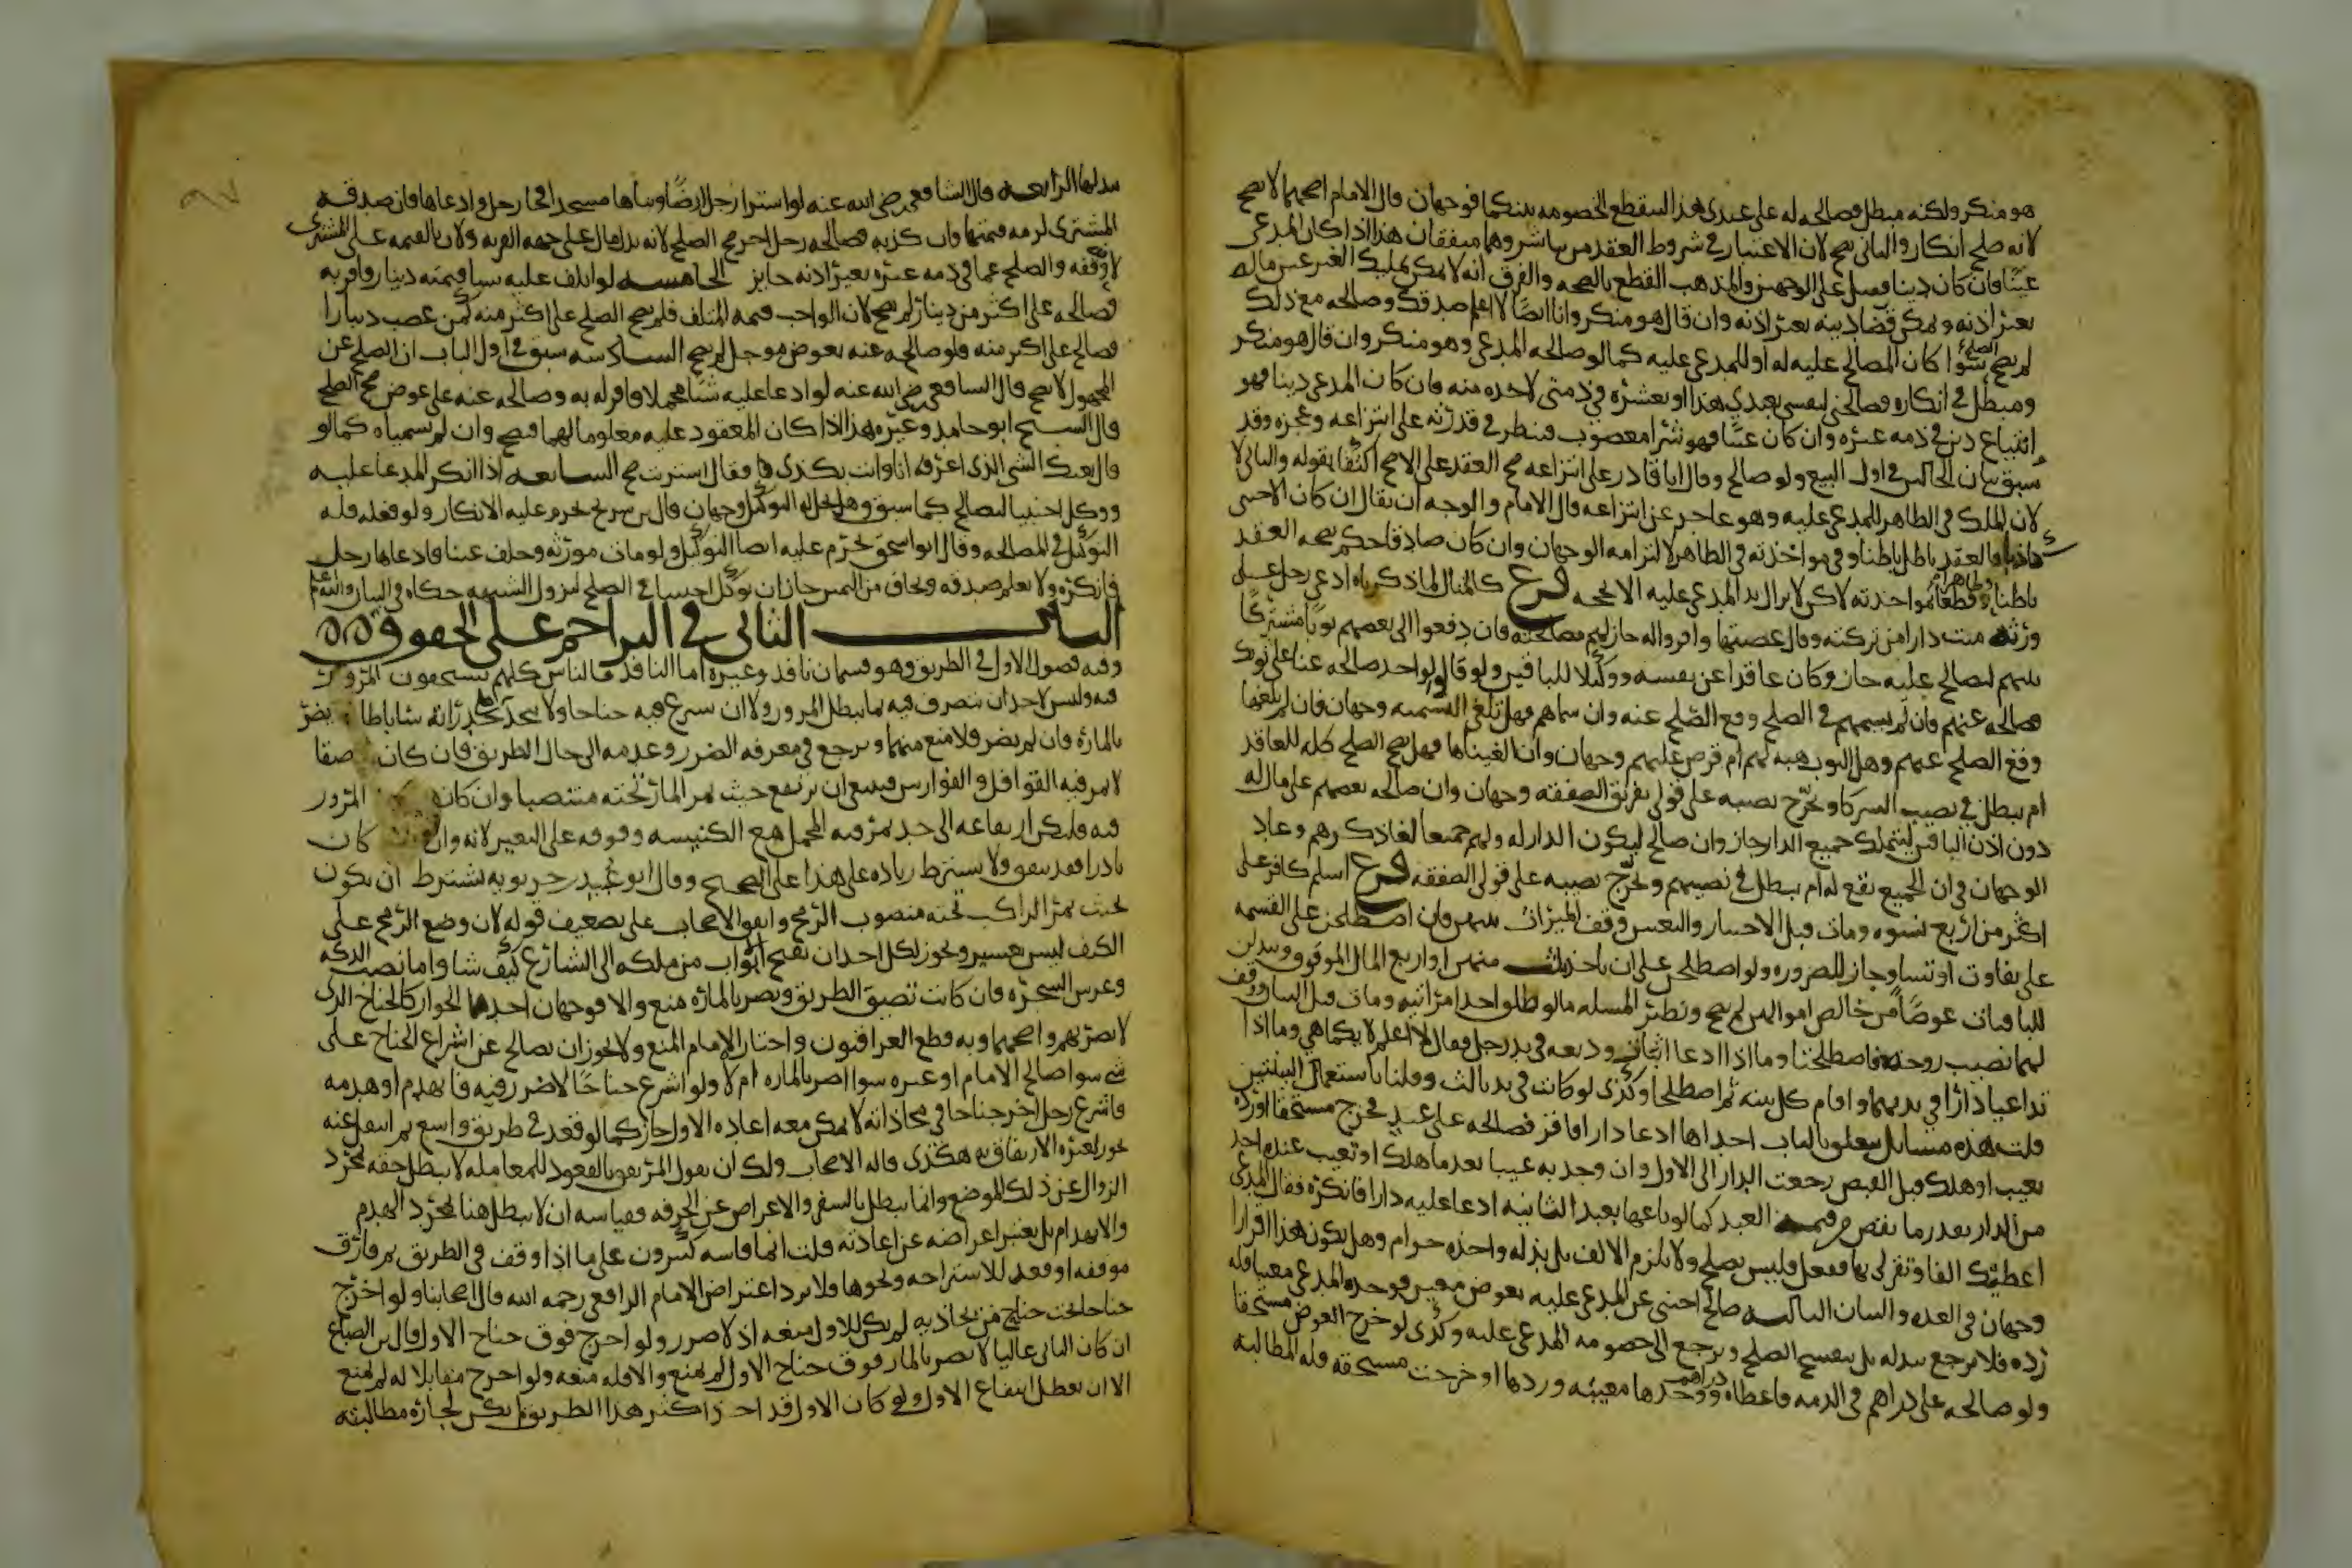 هو منكر ولكنه مبطل فصالحه له على عبدى هذا لتنقطع الخصومه بينكما فوجهان قال الامام اصحهما لا يصح
لانه صلح انكار والثانى يصح لان الاعتبار فى شروط العقد من يباشره وهما متفقان هذا اذا كان المدعى
عينا فان كان دينا فقيل على الوجهين والمذهب القطع بالصحه والفرق انه لا يمكن تمليك الغير عين ماله
بغير اذنه ويمكن قضا دينه بغير اذنه وان قال هو منكر وانا ايضا لا اعلم صدقك وصالحه مع ذلك
لم يصح الصلح سوا كان المصالح عليه له او للمدعى عليه كما لو صالحه المدعى وهو منكر وان قال هو منكر
ومبطل فى انكاره فصالحنى لنفسى بعبدى هذا او بعشره فى ذمتى لاخذه منه فان كان المدعى دينا فهو
ابتياع دين فى ذمه غيره وان كان عينا فهو شرا مغصوب فينظر فى قدرته على انتزاعه وعجزه وقد
سبق بيان الحالين فى اول البيع ولو صالح وقال انا قادر على انتزاعه صح العقد على الاصح اكتفا بقوله والثانى لا
لان الملك فى الظاهر للمدعى عليه وهو عاجز عن انتزاعه قال الامام والوجه ان يقال ان كان الاجنبى
كاذبا فالعقد باطل باطنا وفى مواخذته فى الظاهر لالتزامه الوجهان وان كان صادقا حكم بصحه العقد
باطنا وقطعنا بمواخذته لاكن لا يزال يد المدعى عليه الا بحجه فرع كالمثال لما ذكرناه ادعى رجل على
ورثه ميت دارا من تركته وقال غصبنيها واقروا له جاز لهم مصالحته فان دفعوا الى بعضهم ثوبا مشتركا
بينهم ليصالح عليه جاز وكان عاقدا عن نفسه ووكيلا للباقين ولو قالوا لواحد صالحه عنا على ثوبك
فصالحه عنهم فان لم يسمهم فى الصلح وقع الصلح عنه وان سماهم فهل تلغى التسميه وجهان فان لم نلغها
وقع الصلح عنهم وهل الثوب هبه لهم ام قرض عليهم وجهان وان الغيناها فهل يصح الصلح كله للعاقد
ام يبطل فى نصيب الشركا ويخرج نصيبه على قولى تفريق الصفقه وجهان وان صالحه بعضهم على مال له
دون اذن الباقين ليتملك جميع الدار جاز وان صالح ليكون الدار له ولهم جميعا لغا ذكرهم وعاد
الوجهان فى ان الجميع يقع له ام يبطل فى نصيبهم ويخرج نصيبه على قولى الصفقه فرع اسلم كافر على
اكثر من اربع نسوه ومات قبل الاختيار والتعيين وقف الميراث بينهن فان اصطلحن على القسمه
على تفاوت او تساو جاز للضروره ولو اصطلحن على ان ياخذ ثلث منهن او اربع المال الموقوف ويبذلن
للباقيات عوضا من خالص اموالهن لم يصح ونظير المسله ما لو طلق احدا امراتيه ومات قبل البيان ووقف
لهما نصيب زوجه فاصطلحتا وما اذا ادعا اثنان وديعه فى يد رجل فقال لا اعلم لايكما هى وما اذا
تداعيا دارا فى يديهما واقام كل بينه ثم اصطلحا وكذى لو كانت فى يد ثالث وقلنا باستعمال البينتين
قلت هذه مسايل تتعلق بالباب احداها ادعا دارا فاقر فصالحه على عبد فخرج مستحقا او رده
بعيب او هلك قبل القبض رجعت الدار الى الاول وان وجد به عيبا بعد ما هلك او تعيب عنده اخذ
من الدار بقدر ما نقص من قيمه العبد كما لو باعها بعبد الثانيه ادعا عليه دارا فانكره فقال المدعى
اعطيتك الفا وتقر لى بها ففعل فليس بصلح ولا يلزم الالف بل بذله واخذه حرام وهل يكون هذا اقرارا
وجهان فى العده والبيان الثالثه صالح اجنبى عن المدعى عليه بعوض معين فوجده المدعى معيبا فله
رده فلا يرجع ببدله بل ينفسخ الصلح ويرجع الى خصومه المدعى عليه وكذى لو خرج العوض مستحقا
ولو صالحه على دراهم فى الذمه فاعطاه دراهم ووجدها معيبه وردها او خرجت مستحقه فله المطالبه
ببدلها الرابعه قال الشافعى رضى الله عنه لو اشترا رجل ارضا وبناها مسجدا فجا رجل وادعاها فان صدقه
المشترى لزمه قيمتها وان كذبه فصالحه رجل اخر صح الصلح لانه بذل مال على جهه القربه ولان بالقيمه على المشترى
لا وقفه والصلح عما فى ذمه غيره بغير اذنه جايز الخامسه لو اتلف عليه شيا قيمته دينار فاقر به
فصالحه على اكثر من دينار لم يصح لان الواجب قيمه المتلف فلم يصح الصلح على اكثر منه كمن غصب دينارا
فصالح على اكثر منه ولو صالحه عنه بعوض موجل لم يصح السادسه سبق فى اول الباب ان الصلح عن
المجهول لا يصح قال الشافعى رضى الله عنه لو ادعا عليه شيا مجملا فاقر له به وصالحه عنه على عوض صح الصلح
قال الشيخ ابو حامد وغيره هذا اذا كان المعقود عليه معلوما لهما فيصح وان لم يسمياه كما لو
قال بعتك الشى الذى اعرفه انا وانت بكذى فقال اشتريت صح السابعه اذا انكر المدعا عليه
ووكل اجنبيا ليصالح كما سبق وهل يحل له التوكيل وجهان قال بن سريج يحرم عليه الانكار ولو فعله فله
التوكيل فى المصالحه وقال ابو اسحق يحرم عليه ايضا التوكيل ولو مات مورثه وخلف عينا فادعاها رجل
فانكره ولا يعلم صدقه وتخاف من اليمين جاز ان يوكل اجنبيا فى الصلح لتزول الشبهه حكاه فى البيان والله اعلم
الباب الثانى فى التزاحم على الحقوق
وفيه فصول الاول فى الطريق وهو قسمان نافذ وغيره اما النافذ فالناس كلهم يستحقون المرور
فيه وليس لاحد ان يتصرف فيه بما يبطل المرور ولا ان يشرع فيه جناحا ولا يتخذ على جدرانه ساباطا يضر
بالماره فان لم يضر فلا منع منهما ويرجع فى معرفه الضرر وعدمه الى حال الطريق فان كان ضيقا
لا يمر فيه القوافل والفوارس فينبغى ان يرتفع حيث يمر المار تحته منتصبا وان كان المرور
فيه فليكن ارتفاعه الى حد يمر فيه المحمل مع الكنيسه وفوقه على البعير لانه وان كان
نادرا فقد يتفق ولا يشترط زياده على هذا على الصحيح وقال ابو عبيد بن حربويه يشترط ان يكون
بحيث يمر الراكب تحته منصوب الرمح واتفق الاصحاب على تضعيف قوله لان وضع الرمح على
الكتف ليس بعسير ويجوز لكل احد ان يفتح ابواب من ملكه الى الشارع كيف شا واما نصب الدكه
وغرس الشجره فان كانت تضيق الطريق وتضر بالماره منع والا فوجهان احدهما الجواز كالجناح الذى
لا يضر بهم واصحهما وبه قطع العراقيون واختار الامام المنع ولا يجوز ان يصالح عن اشراع الجناح على
شى سوا صالح الامام او غيره سوا اضر بالماره ام لا ولو اشرع جناحا لا ضرر فيه فانهدم او هدمه
فاشرع رجل اخر جناحا فى محاذاته لا يمكن معه اعاده الاول جاز كما لو قعد فى طريق واسع ثم انتقل عنه
يجوز لغيره الارتفاق به هكذى قاله الاصحاب ولك ان تقول المرتفق بالقعود للمعامله لا يبطل حقه بمجرد
الزوال عن ذلك الموضع وانما يبطل بالسفر والاعراض عن الحرفه فقياسه ان لا يبطل هنا بمجرد الهدم
والانهدام بل يعتبر اعراضه عن اعادته قلت انما قاسه كثيرون على ما اذا وقف فى الطريق ثم فارق
موقفه او قعد للاستراحه ونحوها فلا يرد اعتراض الامام الرافعى رحمه الله قال اصحابنا ولو اخرج
جناحا تحت جناح من يحاذيه لم يكن للاول منعه اذ لا ضرر ولو اخرج فوق جناح الاول قال بن الصباغ
ان كان الثانى عاليا لا يضر بالمار فوق جناح الاول لم يمنع والا فله منعه ولو اخرج مقابلا له لم يمنع
الا ان يعطل انتفاع الاول ولو كان الاول قد اخذ اكثر هذا الطريق لم يكن لجاره مطالبته